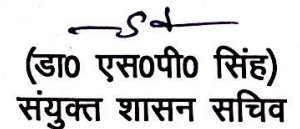 (डा० एस०पी० सिंह)
संयुक्त शासन सचिव